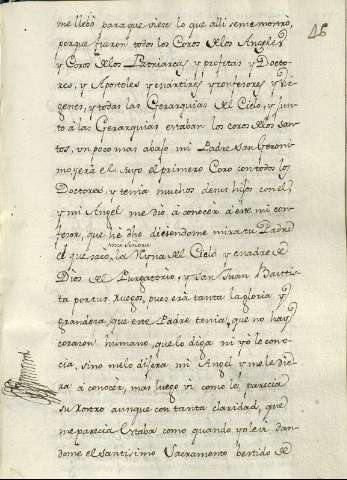 46
me llebò para que viese lo que alli seme mostrò,
porque fueron todos los Coros de los Angeles
y Coros de los Patriarcas y profetas y Docto-
res, y Apostoles y martires y confesores y vir-
genes, y todas las Gerarquias del Cielo, y jun-
to à las Gerarquias estaban los coros de los san-
tos, un poco mas abajo mi Padre san Geroni-
mo y era el suyo el primero Coro con todos los
Doctores, y tenia muchos de sus hijos con el
y mi Angel me dio à conocèr à este mi con-
fesor, que hè dho diciendome mira tu Padre
el que sacò, la Reyna del Cielo y madre de
mi señora
Dios del Purgatorio, y san Juan Bauttis-
ta por tus ruegos, pues erà tanta la gloria y
grandeza, que este Padre tenia, que no hay
corazon humano, que lo diga ni yò le cono-
cia, sino me lo dijera mi Angel y me le die-
ra à conocèr, mas luego vi como le parecia
su rostro aunque con tanta claridad, que
me parecia estaba como quando yo le vi dan-
dome el santisimo Sacramento bestido de